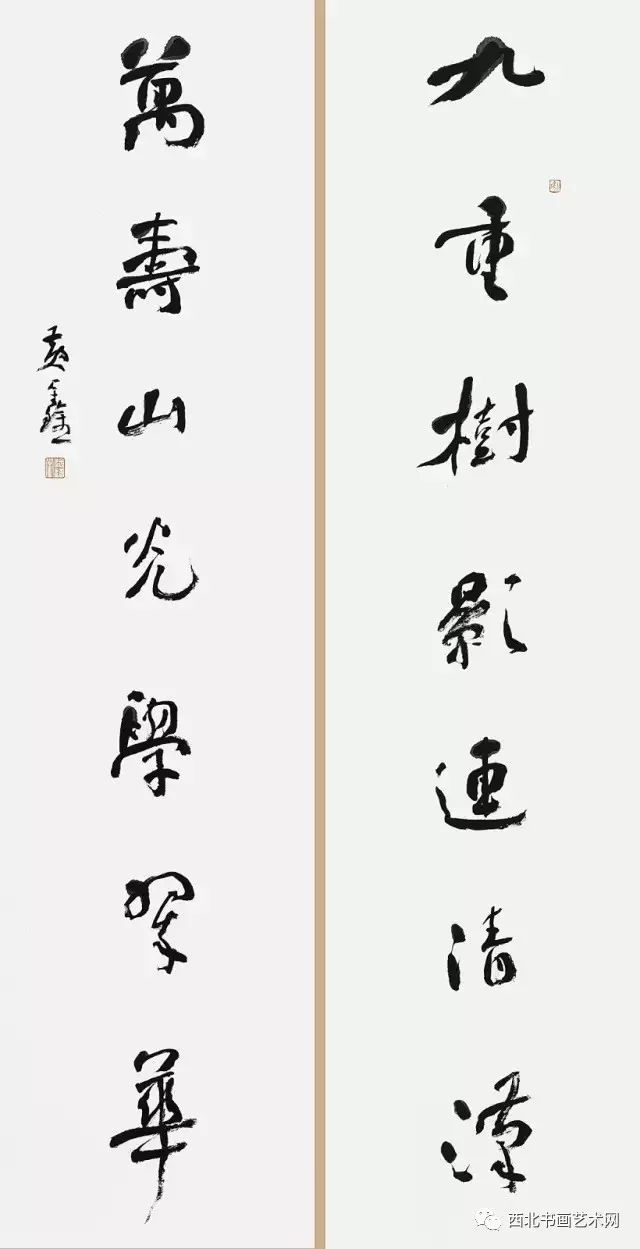 九重樹影連清漢
萬壽山光學翠華
西北书画艺术网